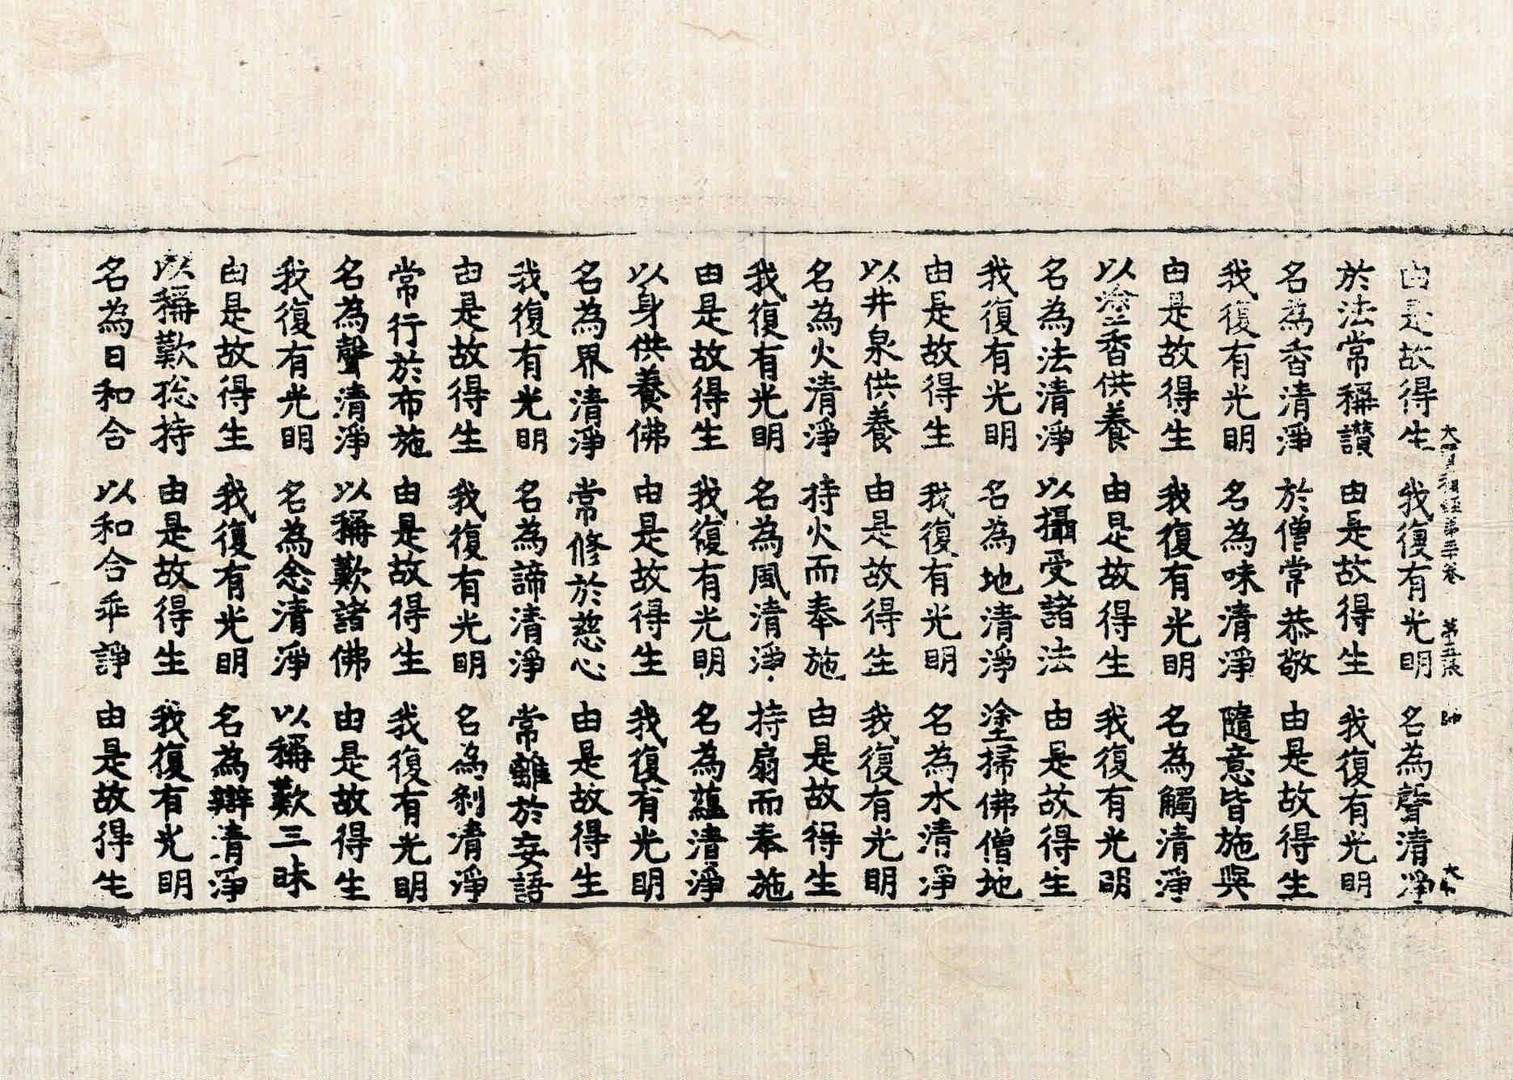 大寶積經第三十卷 第五張 帥
由是故得生 我復有光明 名為聲清淨
於法常稱讚 由是故得生 我復有光明
名為香清淨 於僧常恭敬 由是故得生
我復有光明 名為味清淨 隨意皆施與
由是故得生 我復有光明 名為觸清淨
以塗香供養 由是故得生 我復有光明
名為法清淨 以攝受諸法 由是故得生
我復有光明 名為地清淨 塗掃佛僧地
由是故得生 我復有光明 名為水清淨
以井泉供養 由是故得生 我復有光明
名為火清淨 持火而奉施 由是故得生
我復有光明 名為風清淨 持扇而奉施
由是故得生 我復有光明 名為蘊清淨
以身供養佛 由是故得生 我復有光明
名為界清淨 常修於慈心 由是故得生
我復有光明 名為諦清淨 常離於妄語
由是故得生 我復有光明 名為刹清淨
常行於布施 由是故得生 我復有光明
名為聲清淨 以稱歎諸佛 由是故得生
我復有光明 名為念清淨 以稱歎三昧
由是故得生 我復有光明 名為辯清淨
以稱歎惣持 由是故得生 我復有光明
名為日和合 以和合乖諍 由是故得生